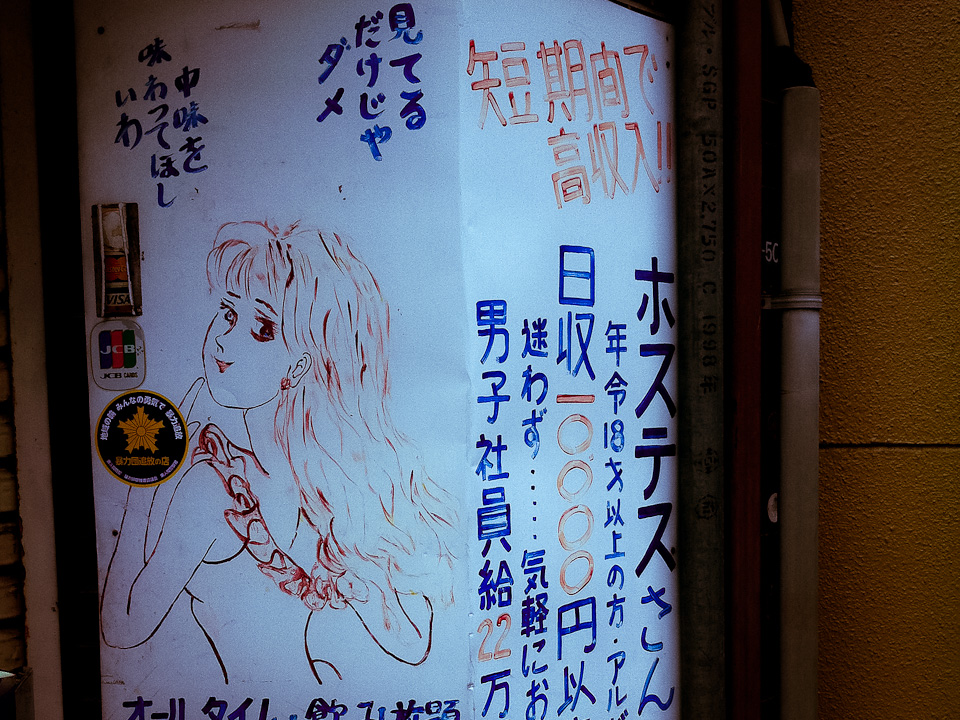 見てる
だけじゃ
ダメ
中味を
味わってほし
いわ
短期間で
高収入!!
ホステスさん
年令18才以上の方・アル
日収一〇〇〇〇円以
迷わず……気軽にお
男子社員給22万
オールタイム・飲み放題
VISA
JCB
JCB CARDS
みんなの勇気で
暴力追放
暴力団追放の店
SGP 50A×2.750 C 1998年
-50